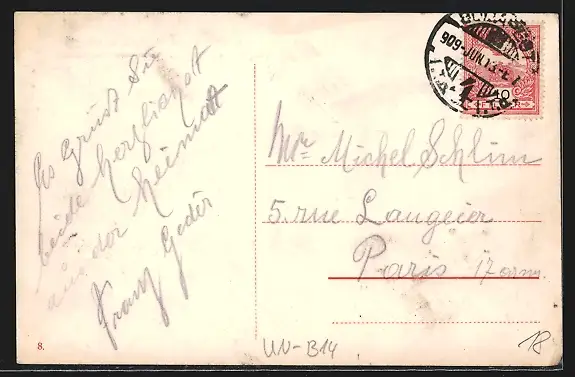 Es Grüst Sie
beide herzlichst
aus der Heimat
Franz Geder
8.
909 JUN. 13
Mr Michel Schlim
5. rue Laugeier
Paris 17 arm
UN-B14
18